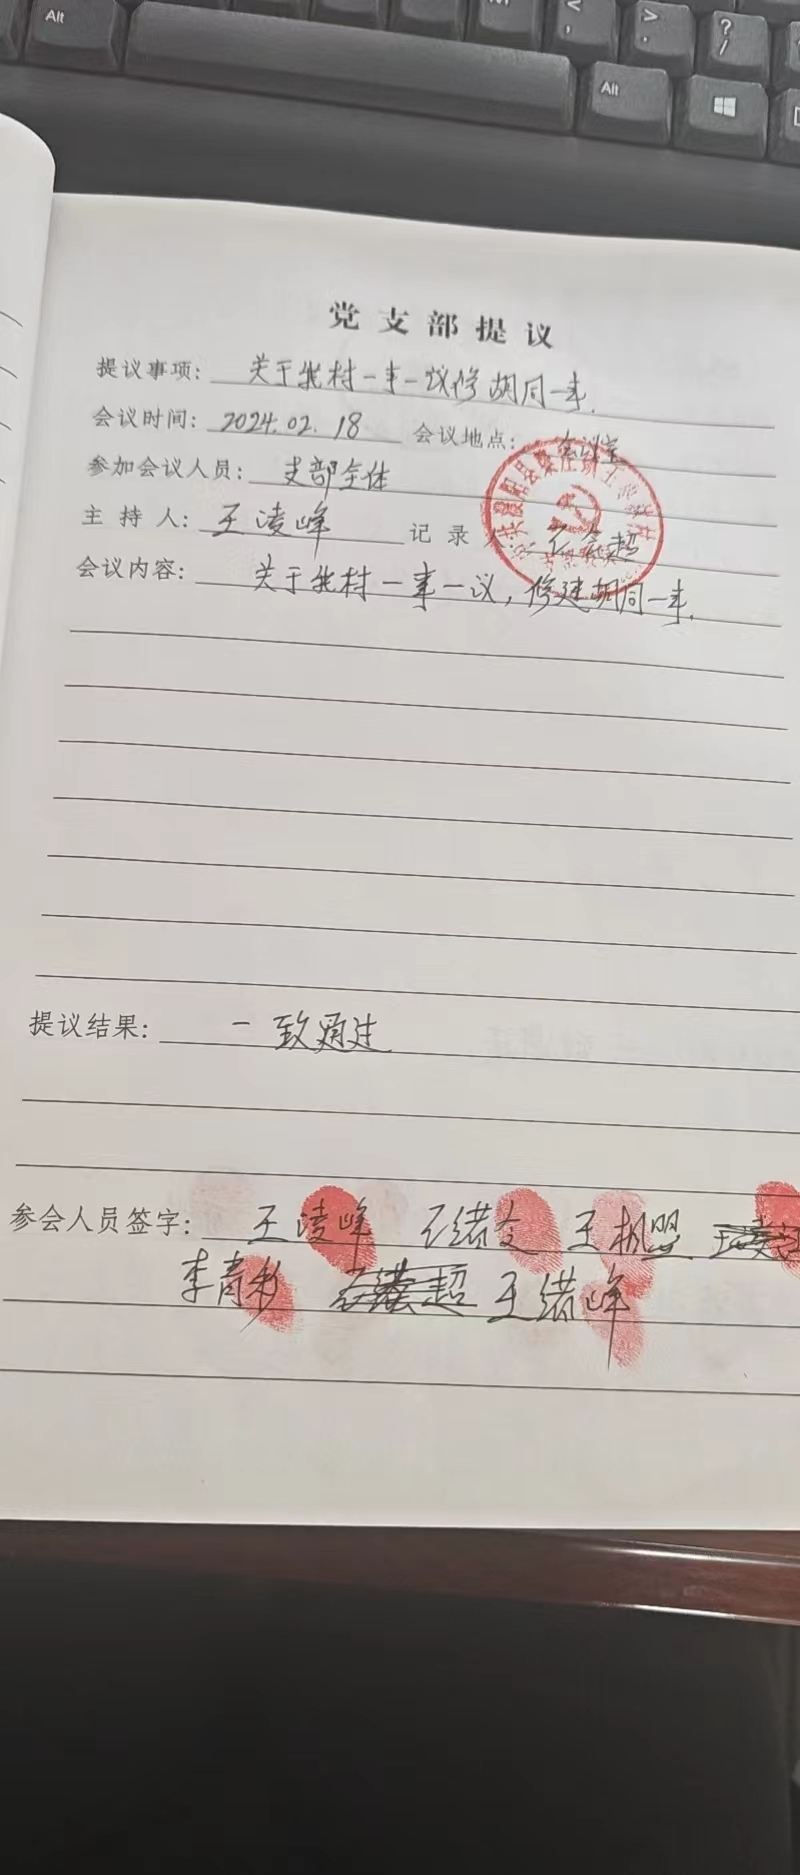 Alt
Alt
<
,
>
.
?
/
党支部提议
提议事项: 关于我村一事一议修胡同一事.
会议时间: 2024.02.18 会议地点: 会议室
参加会议人员: 支部全体
主持人: 王凌峰 记录人:
会议内容: 关于我村一事一议,修建胡同一事.
提议结果: 一致通过
参会人员签字: 王凌峰
王绪峰